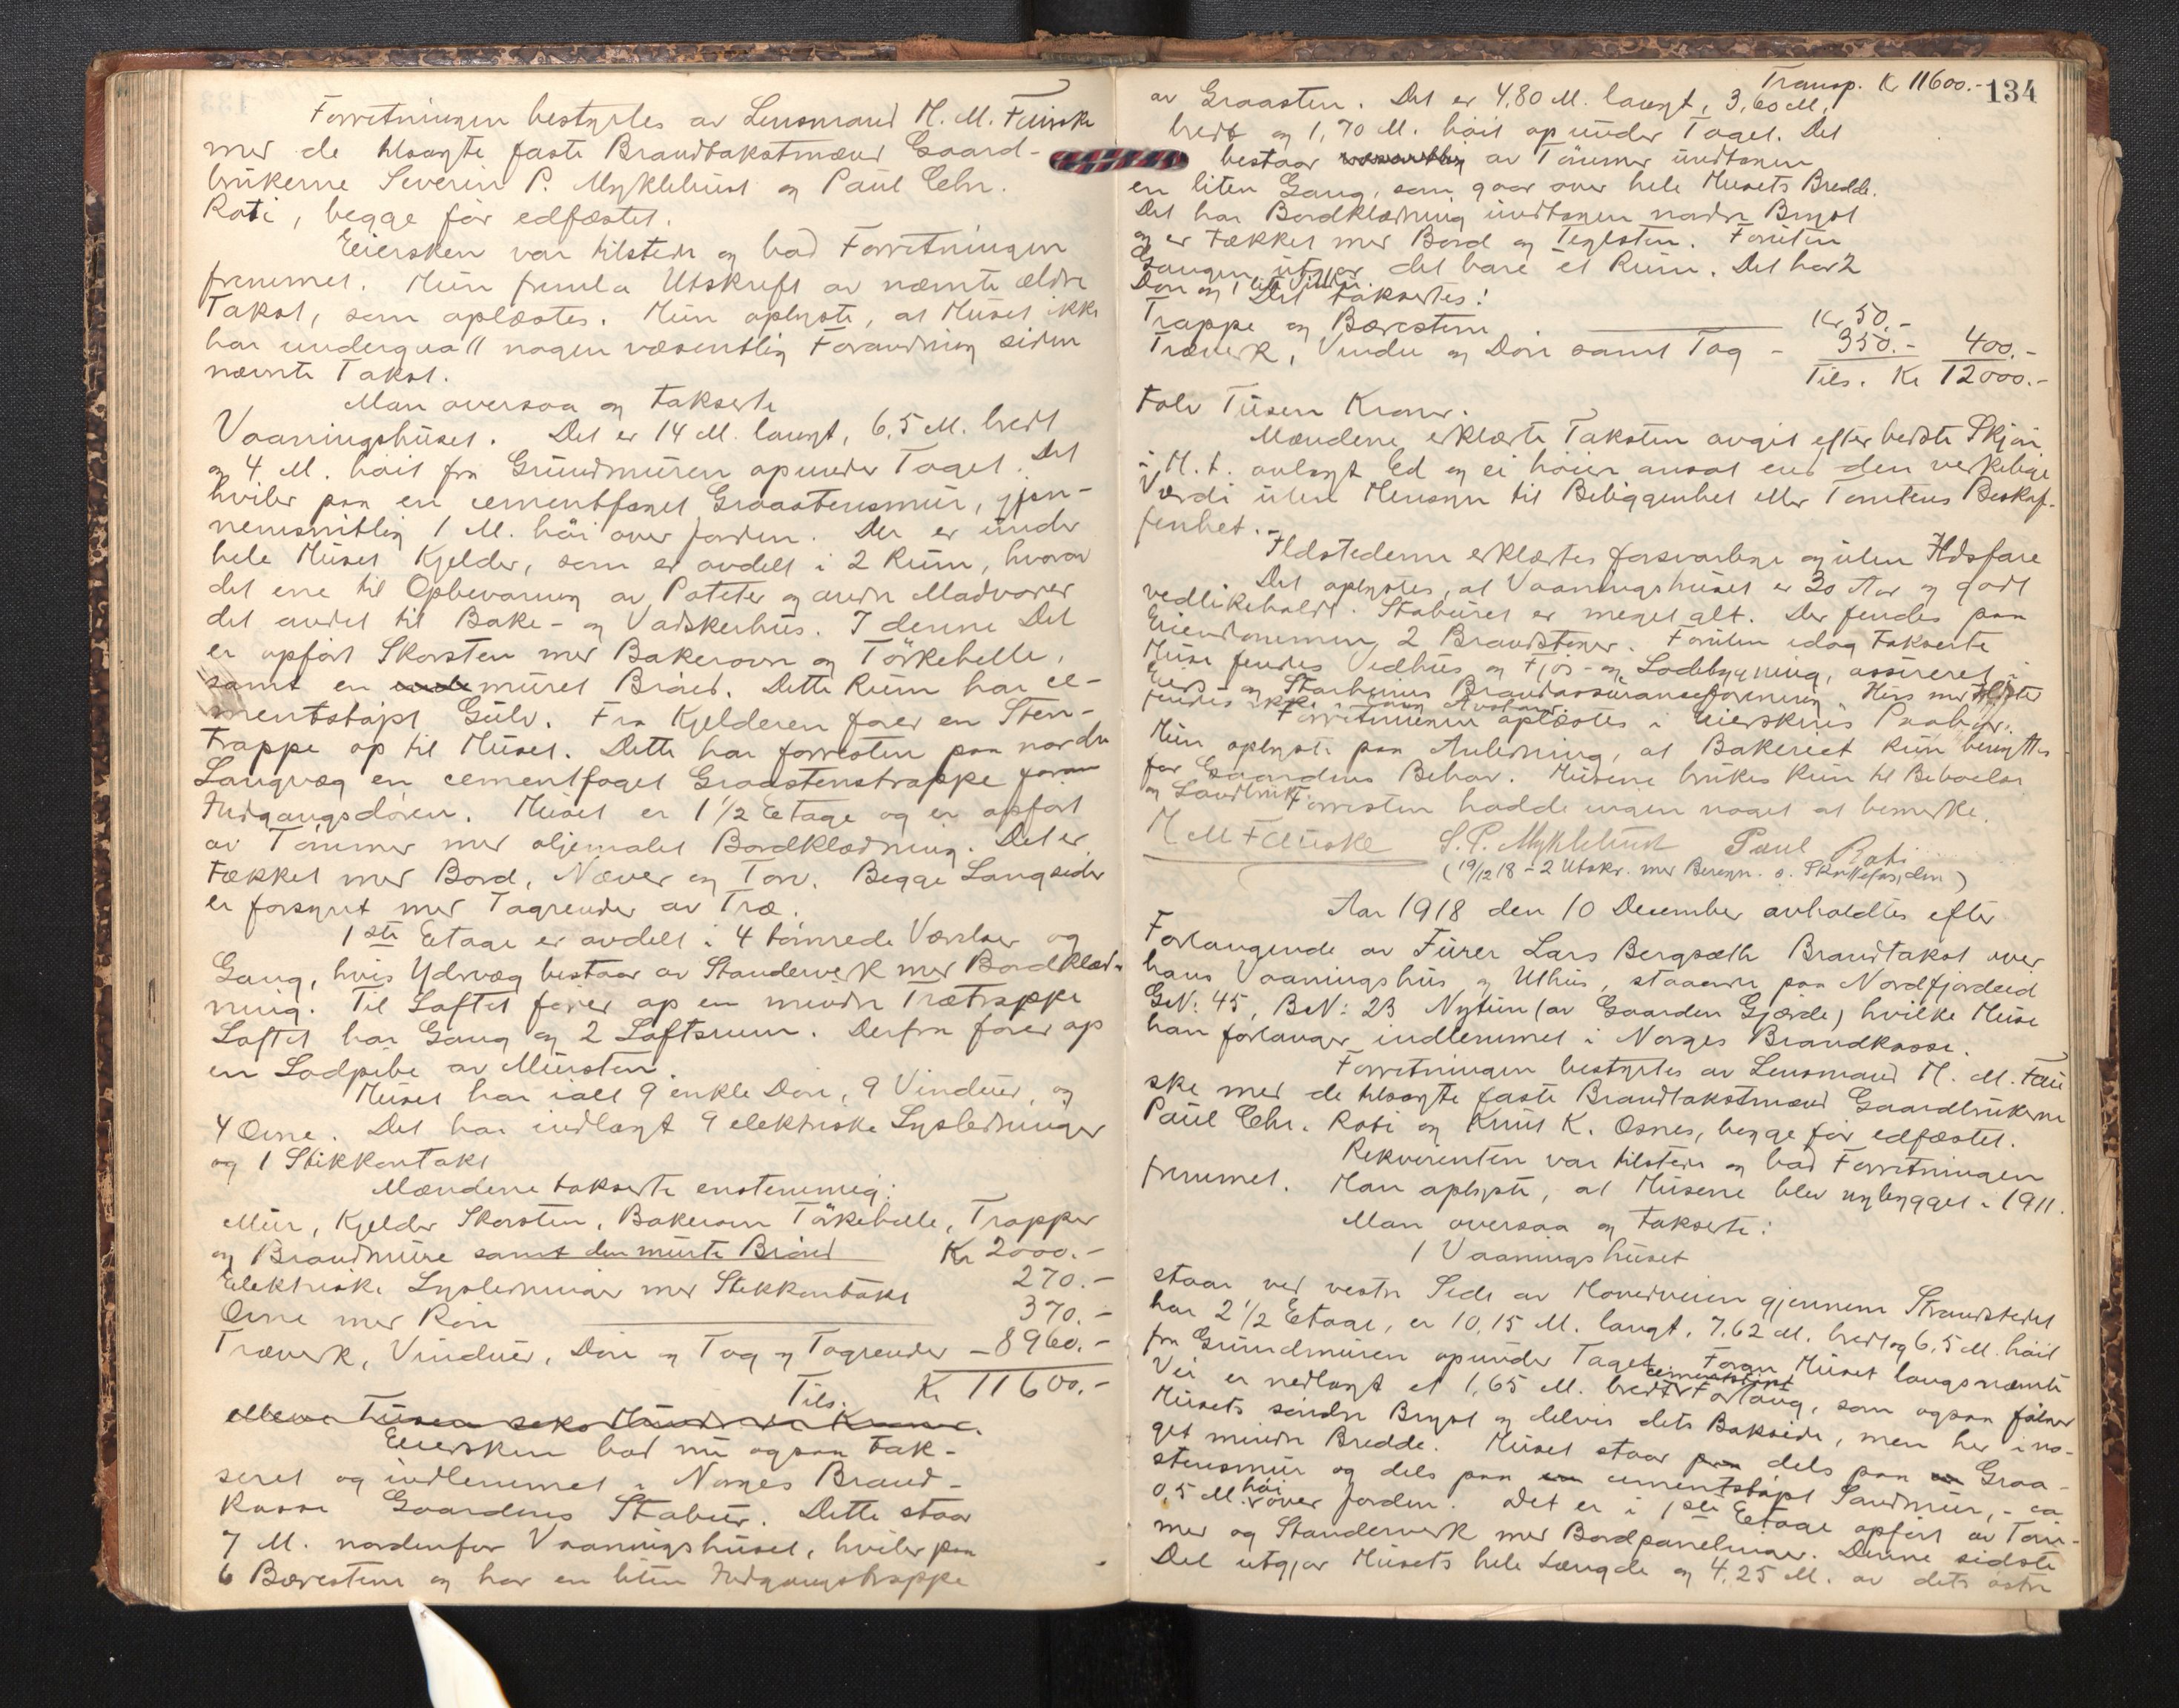 Forretningen bestyrtes av Lensmand H. M. Fauske
med de tilsagte faste Brandtakstmænd Gaard-
brukerne Severin P. Myklebust og Paul Chr.
Roti, begge før edfæstet.
Eiersken var tilstede og bad Forretningen
fremmet. Hun fremla Utskrift av nævnte ældre
Takst, som oplæstes. Hun oplyste, at Huset ikke
har undergaatt nogen væsentlig Forandring siden
nævnte Takst.
Man oversaa og takserte
Vaaningshuset. Det er 14 M. langt, 6,5 M. bredt
og 4 M. høit fra Grundmuren op under Taget. Det
hviler paa en cementfuget Graastensmur, gjen-
nemsnitlig 1 M. høi over Jorden. Der er under
hele Huset Kjelder, som er avdelt i 2 Rum, hvorav
det ene til Opbevaring av Poteter og andre Madvarer
det andet til Bake- og Vadskerhus. I denne Del
er opført Skorsten med Bakerovn og Tørkehelle,
samt en muret Brønd. Dette Rum har ce-
mentstøpt Gulv. Fra Kjelderen fører en Sten-
trappe op til Huset. Dette har forresten paa nordre
Langvæg en cementfuget Graastenstrappe foran
Indgangsdøren. Huset er 1 1/2 Etage og er opført
av Tømmer med oljemalet Bordklædning. Det er
tækket med Bord, Næver og Torv. Begge Langsider
er forsynt med Tagrender av Træ.
1ste Etage er avdelt i 4 tømrede Værelser og
Gang, hvis Ydrevæg bestaar av Standerverk med Bordklæd-
ning. Til Loftet fører op en mindre Trætrappe
Loftet har Gang og 2 Loftsrum. Derfra fører op
en Lodpibe av Mursten.
Huset har ialt 9 enkle Døre, 9 Vinduer, og
4 Ovne. Det har indlagt 9 elektriske Lysledninger
og 1 Stikkontakt
Mændene takserte enstemmig:
Mur, Kjelder Skorsten, Bakerovn Tørkehelle, Trapper
og Brandmure samt den murte Brønd Kr 2000.-
Elektriske Lysledninger med Stikkontakt 270.-
Ovne med Rør 370.-
Træverk, Vinduer, Døre og Tag og Tagrender - 8960.-
Tils. Kr 11600.-
elleve Tusen seks Hundrede Kroner.
Eiersken bad nu ogsaa tak-
seret og indlemmet i Norges Brand-
kasse Gaardens Stabur. Dette staar
7 M. nordenfor Vaaningshuset, hviler paa
6 Bærestene og har en liten Indgangstrappe
134
Transp. Kr 11600.-
av Graasten. Det er 4,80 M. langt, 3,60 M.
bredt og 1,70 M. høit op under Taget. Det
bestaar væsentlig av Tømmer undtagen
en liten Gang, som gaar over hele Husets Bredde.
Det har Bordklædning undtagen nedre Bryst
og er tækket med Bord og Teglsten. Foruten
Gangen utgjør det bare et Rum. Det har 2
Døre og 1 lite Vindu.
Det taksertes:
Trappe og Bærestene Kr 50.-
Træverk, Vindu og Døre samt Tag - 350.- 400.-
Tils. Kr 12000.-
tolv Tusen Kroner.
Mændene erklærte Taksten avgit efter bedste Skjøn
i H. t. avlagt Ed og ei høiere ansat end den verkelige
Værdi uten Hensyn til Beliggenhet eller Tomtens Beskaf-
fenhet.
Ildstederne erklærtes forsvarlige og uten Ildsfare
Det oplystes, at Vaaningshuset er 30 Aar og godt
vedlikeholdt. Staburet er meget alt. Der fendes paa
Eiendommen 2 Brandstiger. Foruten idag takserte
Huse fendes Vedhus og Fjøs- og Ladebygning, assureret i
Eids og Starheims Brandassuranceforening. Hus med Ildsted
fendes ikke
Forretningen oplæstes i Eierskens Paahør.
Hun oplyste paa Anledning, at Bakeriet kun benyttes
for Gaardens Behov. Husene brukes kun til Beboelse
og Landbruk.
Forresten hadde ingen noget at bemerke.
H M Fauske S. P. Myklebust Paul Roti
(19/12 18 - 2 Utskr. med Beregn. s. )
Aar 1918 den 10 December avholdtes efter
Forlangende av Furer Lars Bergsæth Brandtakst over
hans Vaaningshus og Uthus, staaende paa Nordfjordeid
G.N: 45, B.N: 23 Nytun (av Gaarden Gjærde) hvilke Huse
han forlanger indlemmet i Norges Brandkasse.
Forretningen bestyrtes av Lensmand H. M. Fau
ske med de tilsagte faste Brandtakstmænd Gaardbrukerne
Paul Chr. Roti og Knut K. Osnes, begge før edfæstet.
Rekvirenten var tilstede og bad Forretningen
fremmet. Han oplyste, at Husene blev nybygget i 1911.
Man oversaa og takserte:
1 Vaaningshuset
staar ved vestre Side av Hovedveien gjennem Strandstedet
har 2 1/2 Etage, er 10,15 M. langt, 7,62 M. bredt og 6,5 M. høit
fra Grundmuren op under Taget. Foran Huset langs nævnte
Vei er nedlagt et 1,65 M. bredt cementstøpt Fortaug, som ogsaa følger
Husets søndre Bryst og delvis dets Bakside, men her i no-
get mindre Bredde. Huset staar dels paa Graa-
stensmur og dels paa cementstøpt Sandmur, - ca
0,5 M. høi over Jorden. Det er i 1ste Etage opført av Tøm-
mer og Standerverk med Bordpanelinger. Denne sidste
Del utgjør Husets hele Længde og 4,25 M. av dets østre